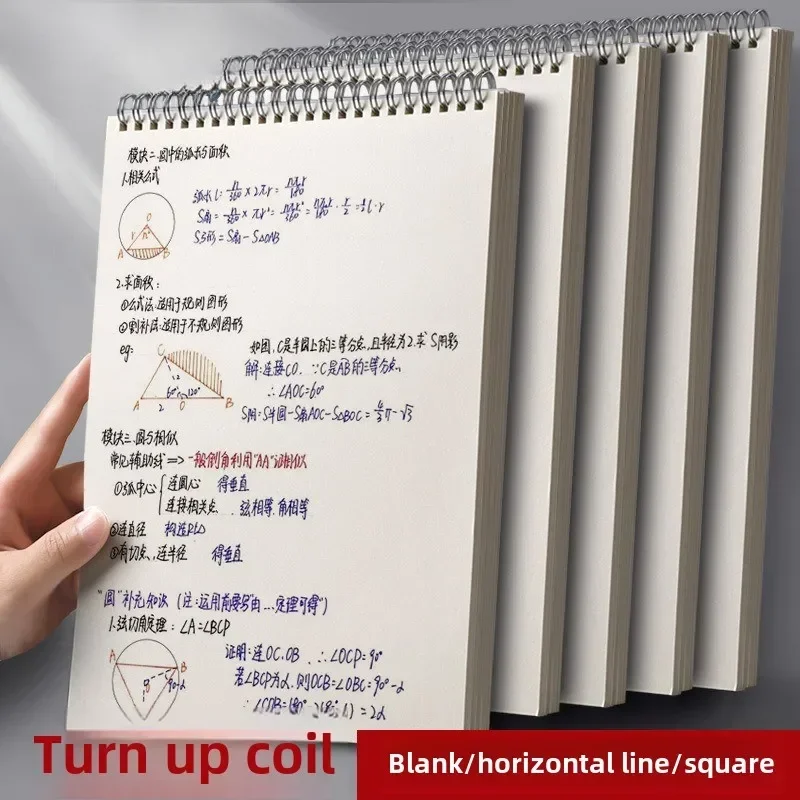 模块二.圆中的弧长与面积
1.相关公式
弧长 l = n/360 × 2πr = nπr/180
S扇 = n/360 × πr² = nπr²/360 = nπr/180 · r/2 = 1/2 l·r
S弓形 = S扇 - S△OAB
O
r n°
A B
2.求面积:
①公式法:适用于规则图形
②割补法:适用于不规则图形
eg:
如图,C是半圆上的三等分点,且半径为2.求S阴影
解:连接CO. ∵C是AB的三等分点,
∴∠AOC=60°
S阴=S半圆-S扇AOC-S△BOC=4/3π-√3
C
60° 120°
A 2 O B
模块三.圆与相似
常见辅助线 => 一般倒角利用"AA"证相似
①弧中心 { 连圆心 得垂直
连接相关点 弦相等.角相等
②连直径 构造Rt△
③有切点,连半径 得垂直
"圆"补充知识(注:运用前要写"由...定理可得")
1.弦切角定理: ∠A=∠BCP
证明:连OC.OB ∴∠OCP=90°
若∠BCP为α.则∠OCB=∠OBC=90°-α
A B
90-α
Turn up coil
Blank/horizontal line/square